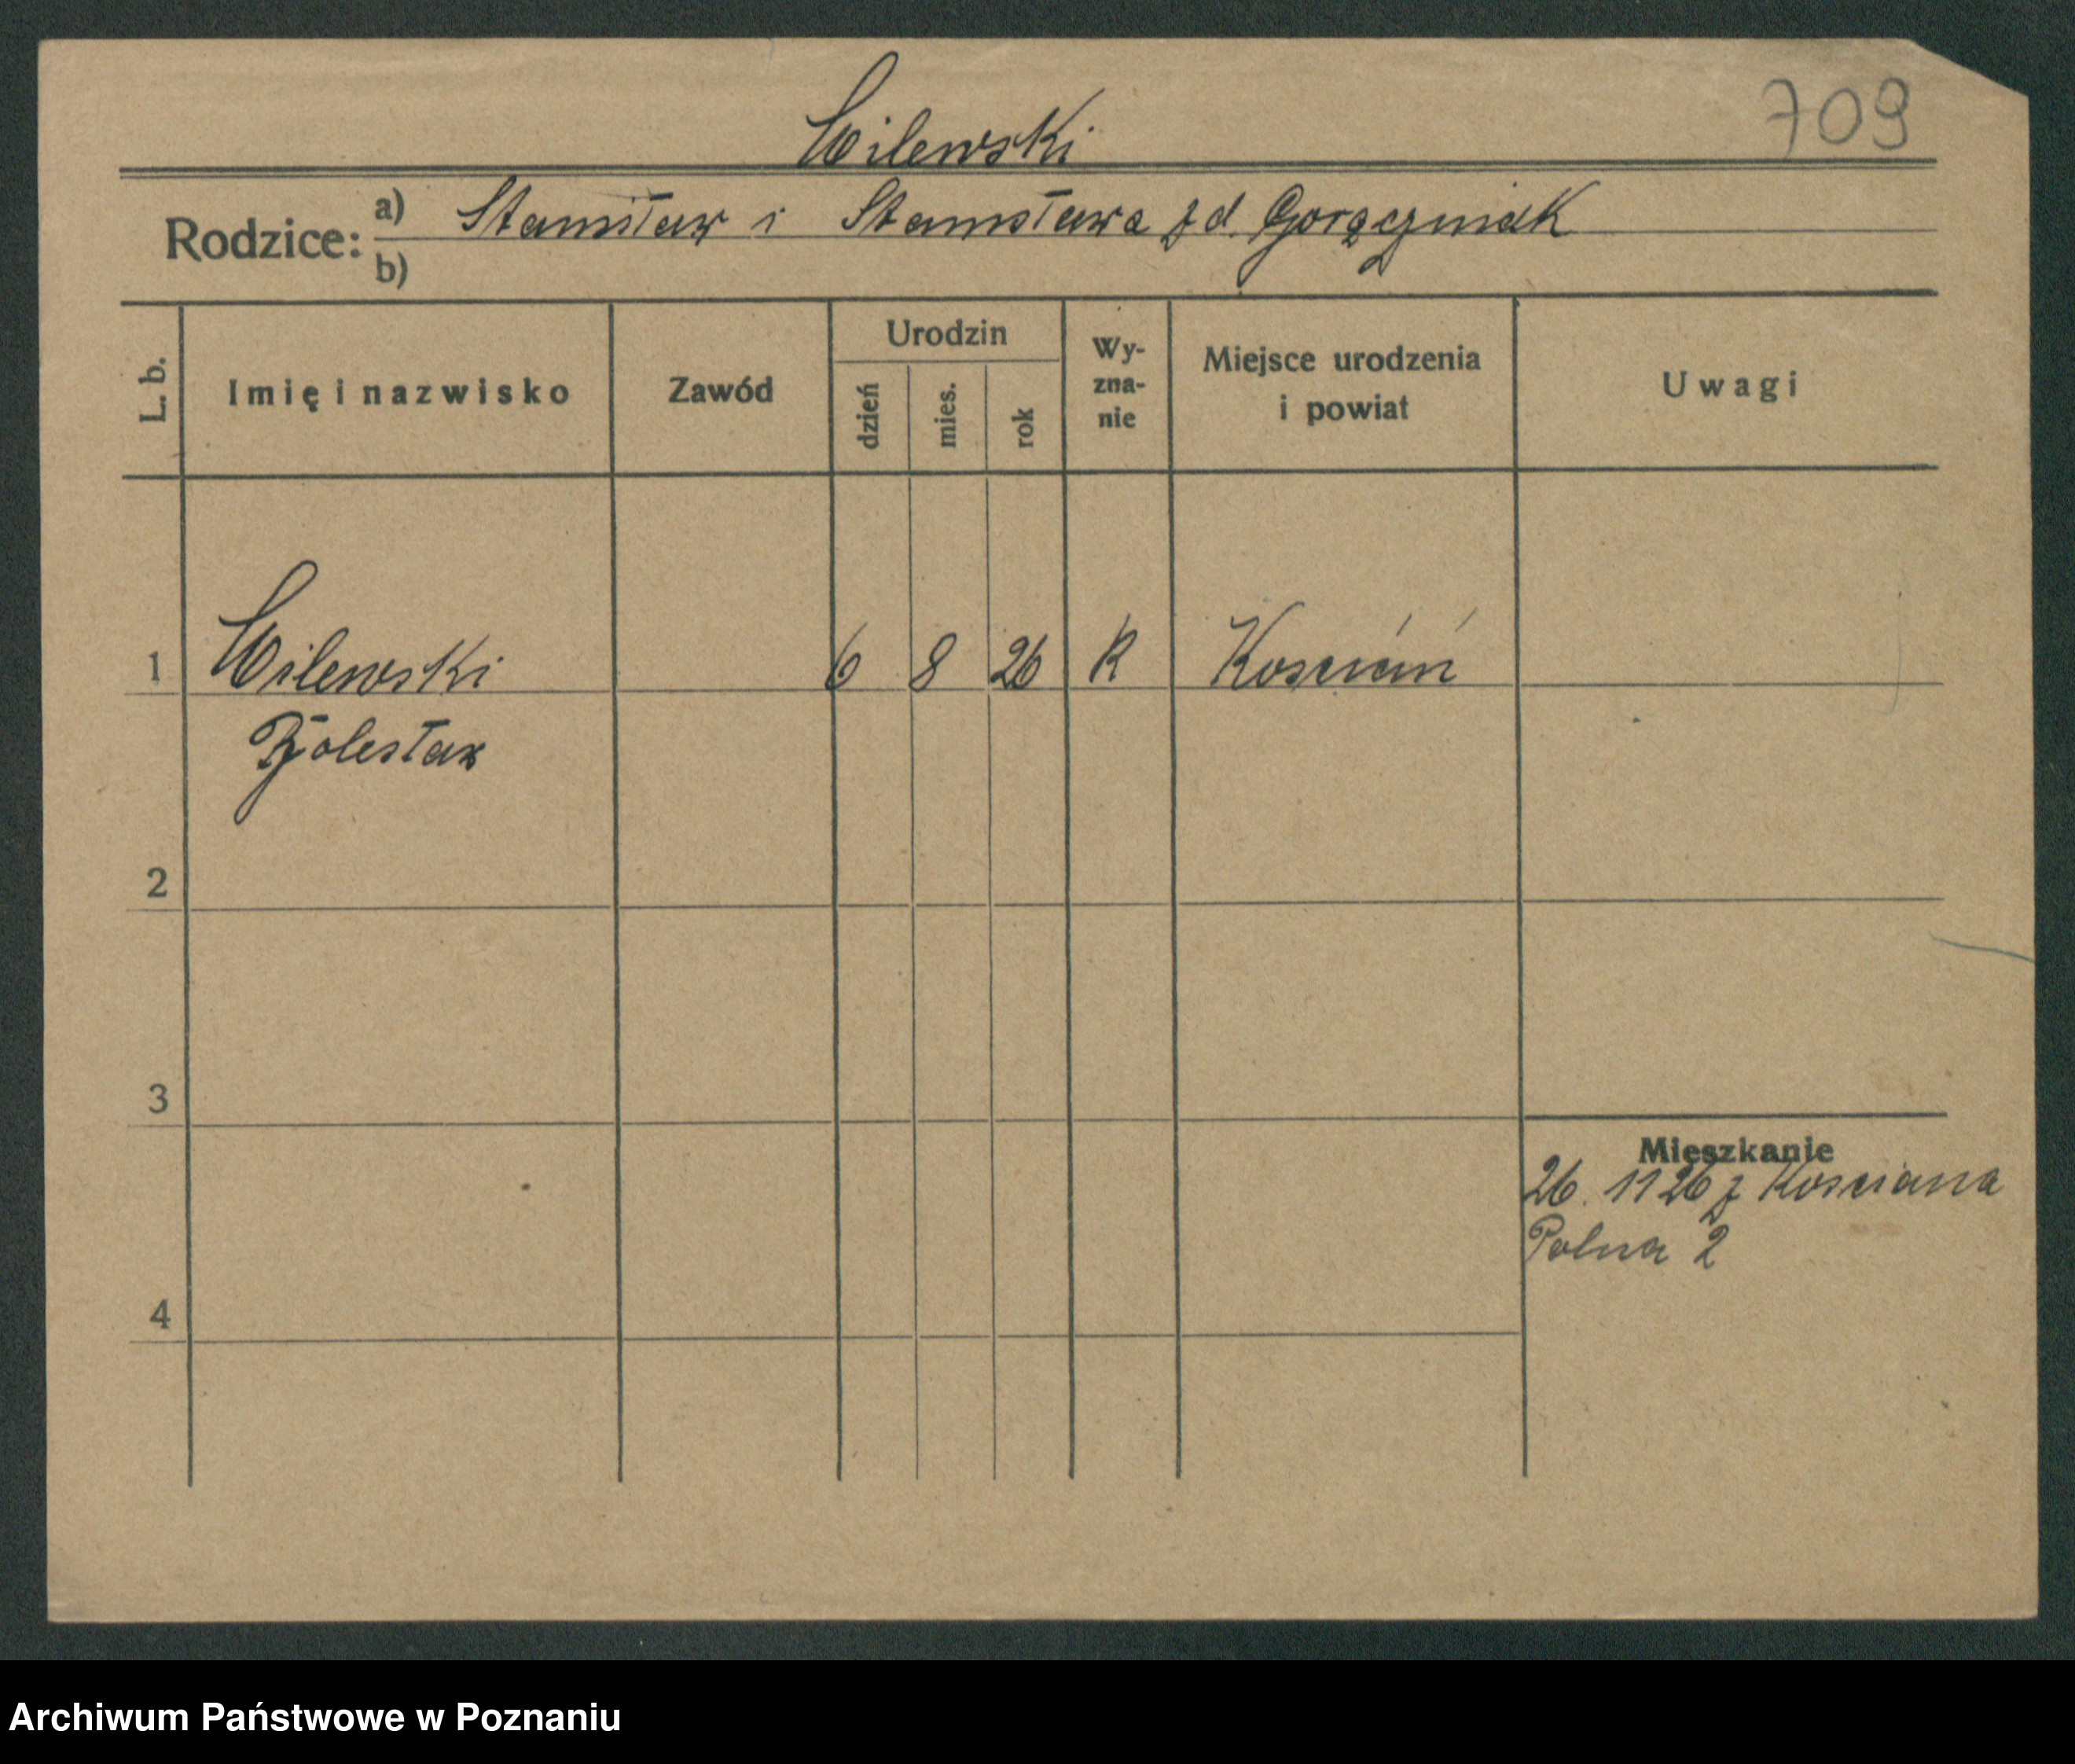 Wilewski
709
Rodzice: a) Stanisław i Stanisława z d. Gorączniak
b)
L. b. Imię i nazwisko Zawód Urodzin dzień mies. rok Wyzna-nie Miejsce urodzenia i powiat Uwagi
1 Wilewski 6 8 26 R Kościań
Bolesław
2
3
Mieszkanie
26. 11 26 z Kosciana
Polna 2
4
Archiwum Państwowe w Poznaniu